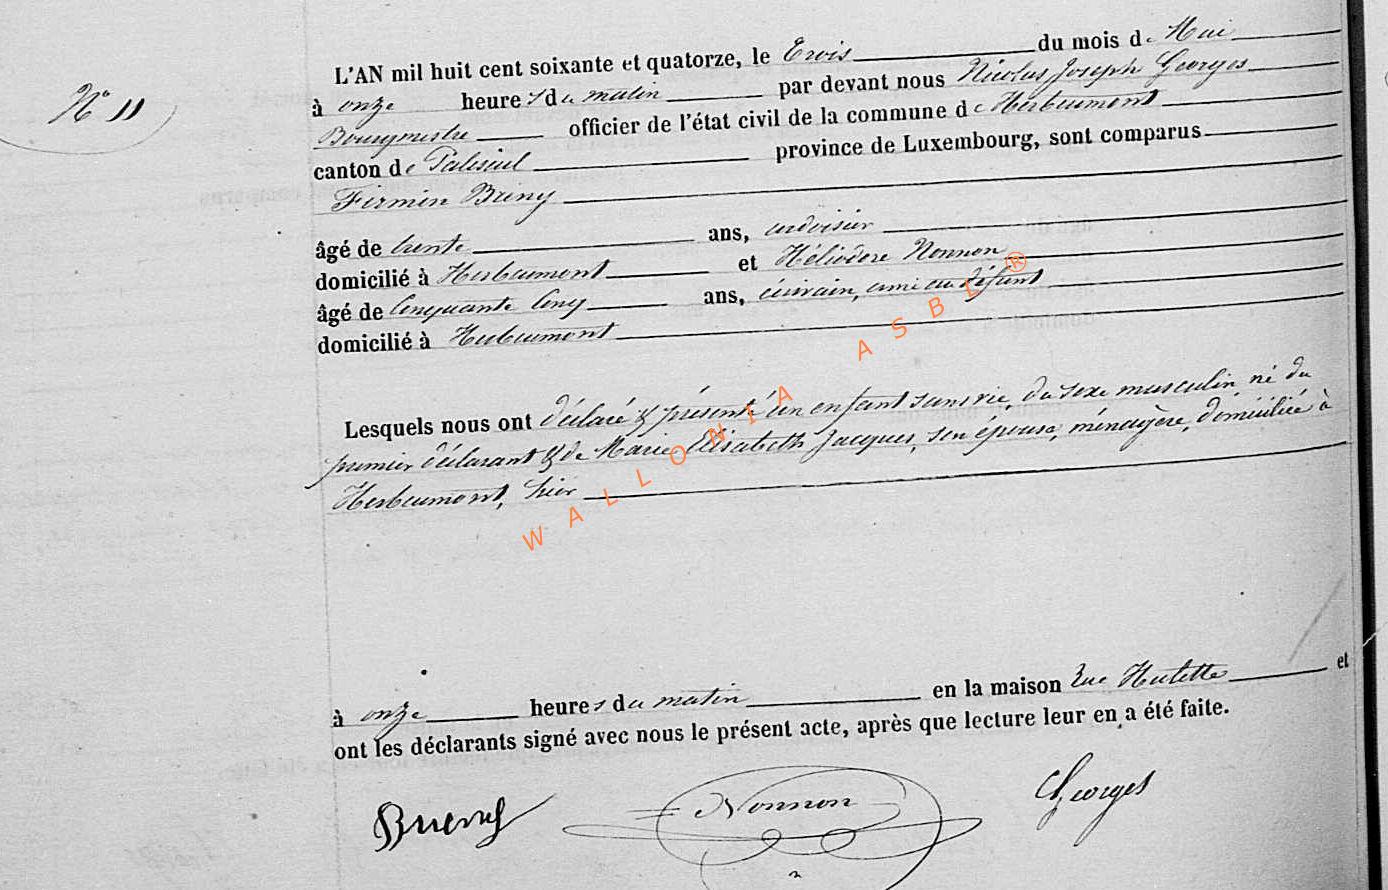 N° 11
L'AN mil huit cent soixante et quatorze, le Trois du mois de Mai
à onze heures du matin par devant nous Nicolas Joseph Georges
Bourgmestre officier de l'état civil de la commune de Herbeumont
canton de Paliseul province de Luxembourg, sont comparus
Firmin Brieny
âgé de trente ans, ardoisier
domicilié à Herbeumont et Héliodore Nonnon
âgé de Cinquante Cinq ans, écrivain, ami du défunt
domicilié à Herbeumont
Lesquels nous ont déclaré & présenté un enfant sans vie, du sexe masculin né du
premier déclarant & de Marie Elisabeth Jacques, son épouse, ménagère, domiciliée à
Herbeumont, hier
à onze heures du matin en la maison Rue Hulette et
ont les déclarants signé avec nous le présent acte, après que lecture leur en a été faite.
Nonnon
Georges
WALLONIA ASBL ®